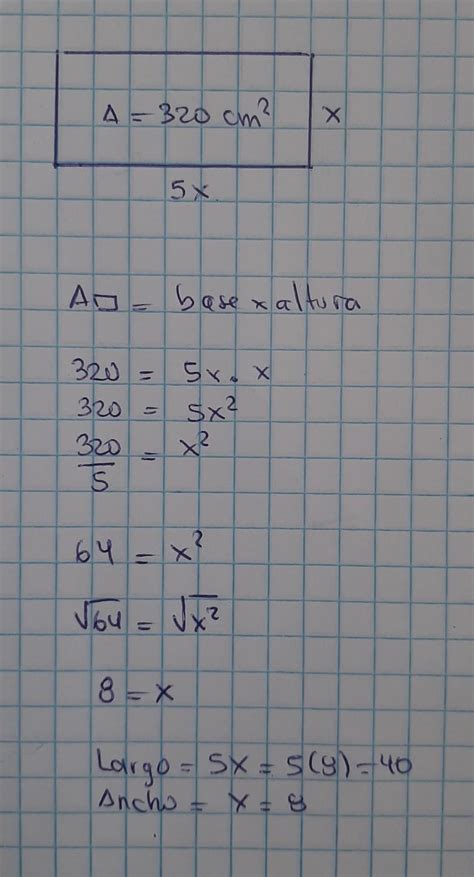 A = 320 cm² x
5x
A▭ = base x altura
320 = 5x . x
320 = 5x²
320/5 = x²
64 = x²
√64 = √x²
8 = x
Largo = 5x = 5(8) = 40
Ancho = x = 8